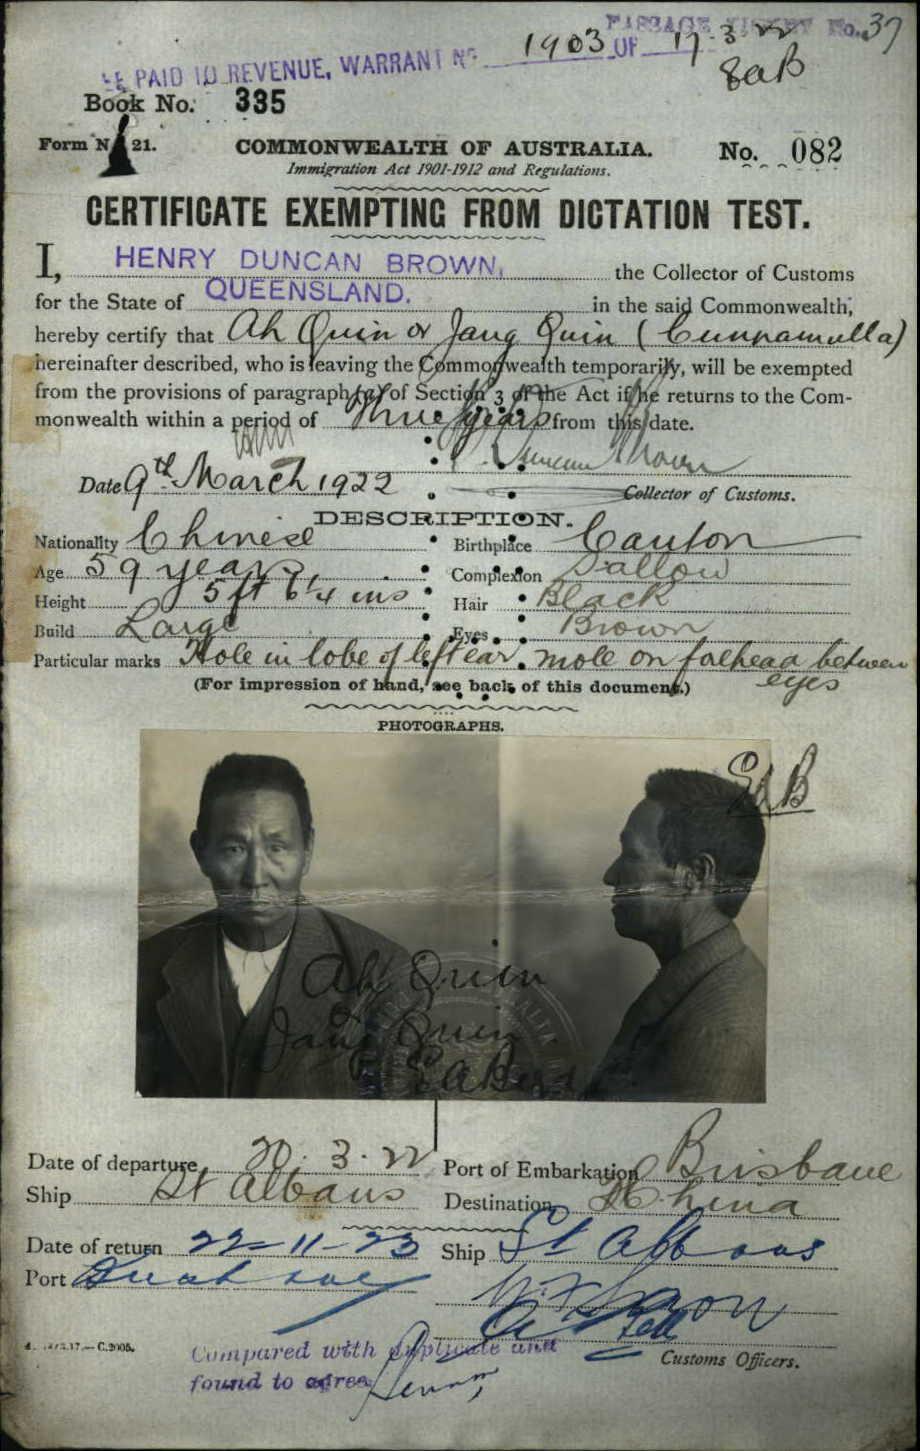 PASSAGE TICKET No. 37
FEE PAID TO REVENUE, WARRANT No. 1903 OF 17.3.22
EaB
Book No. 335
Form No 21.
COMMONWEALTH OF AUSTRALIA.
No. 082
Immigration Act 1901-1912 and Regulations.
CERTIFICATE EXEMPTING FROM DICTATION TEST.
I, HENRY DUNCAN BROWN, the Collector of Customs
for the State of QUEENSLAND. in the said Commonwealth,
hereby certify that Ah Quin or Jang Quin (Cunnamulla)
hereinafter described, who is leaving the Commonwealth temporarily, will be exempted
from the provisions of paragraph (a) of Section 3 of the Act if he returns to the Com-
monwealth within a period of Three years from this date.
Date 9th March 1922
Duncan Brown
Collector of Customs.
DESCRIPTION.
Nationality Chinese
Birthplace Canton
Age 59 years
Complexion Sallow
Height 5 ft 6¼ ins
Hair Black
Build Large
Eyes Brown
Particular marks Hole in lobe of left ear. mole on forhead between
eyes
(For impression of hand, see back of this document.)
PHOTOGRAPHS.
EaB
Ah Quin
or
Jang Quin
Date of departure 20.3.22
Port of Embarkation Brisbane
Ship St Albans
Destination China
Date of return 22-11-23
Ship St Albans
Port
Customs Officers.
C.2005.
Compared with duplicate and
found to agree